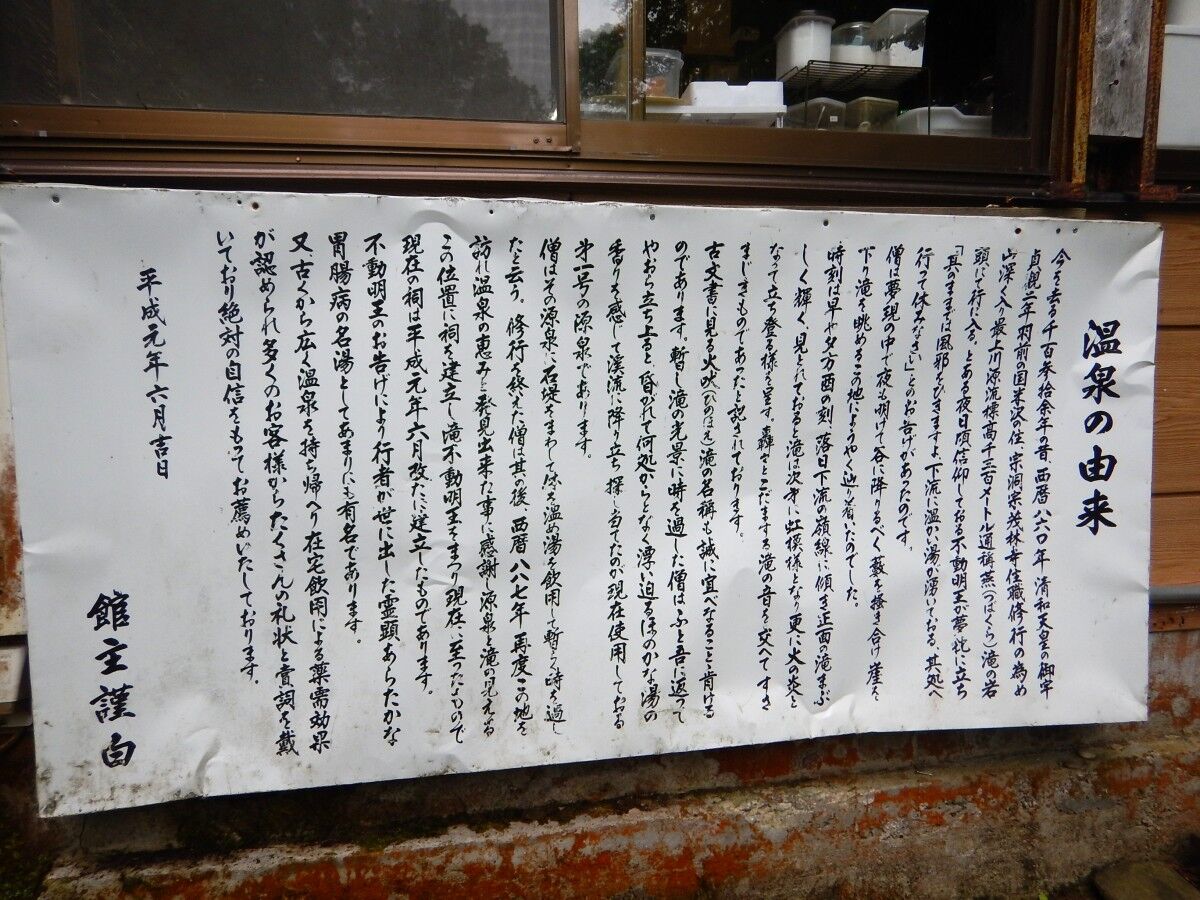 温泉の由来
今を去る千百参拾余年の昔、西暦八六〇年 清和天皇の御年
貞観二年 羽前の国米沢の住 宗洞宗茂林寺住職修行の為め
山深く入り最上川源流標高千三百メートル通称燕(つばくら)滝の岩
頭にて行に入る。とある夜日頃信仰しておる不動明王が夢枕に立ち
「其のままでは風邪をひきますよ 下流に温かい湯が湧いておる、其処へ
行って休みなさい」とのお告げがあったのです。
僧は夢現の中で夜も明けて谷に降りるべく藪を掻き合け崖を
下り滝を眺めるこの地にようやく辿り着いたのでした。
時刻は早や夕方酉の刻、落日下流の嶺線に傾き正面の滝まぶ
しく輝く、見とれておると滝は次才に虹模様となり更に火の炎と
なって立ち登る様を呈す、轟きとこだまする滝の音を交へてすさ
まじきものであったと記されております。
古文書に見る火吹(ひのほえ)滝の名称も誠に宜べなること、肯ける
のであります。暫し滝の光景に時を過した僧はふと吾に返って
やおら立ち上ると昏がれて何処からとなく漂い迫るほのかな湯の
香りを感じて渓流に降り立ち探し当てたのが現在使用しておる
才一号の源泉であります。
僧はその源泉に石堤をまわして体を温め湯を飲用して暫らく時を過し
たと云う。修行を終えた僧は其の後、西暦八八七年 再度この地を
訪れ温泉の恵みと発見出来た事に感謝し源泉と滝の見える
この位置に祠を建立し滝不動明王をまつり現在に至ったもので
現在の祠は平成元年六月改たに建立したものであります。
不動明王のお告げにより行者が世に出した霊顕あらたかな
胃腸病の名湯としてあまりにも有名であります。
又、古くから広く温泉を持ち帰へり在宅飲用による薬需効果
が認められ多くのお客様からたくさんの礼状と賞詞を戴
いており絶対の自信をもってお薦めいたしております。
平成元年六月吉日
館主謹白